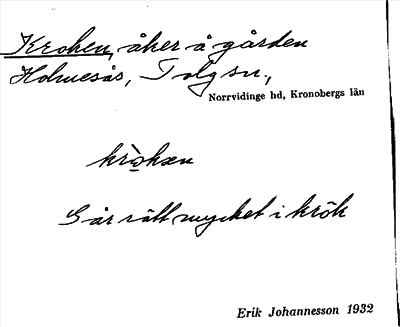 Kroken, åker å gården
Holmesås, Tolg sn.,
Norrvidinge hd, Kronobergs län
kròkən
Går rätt mycket i krök
Erik Johannesson 1932